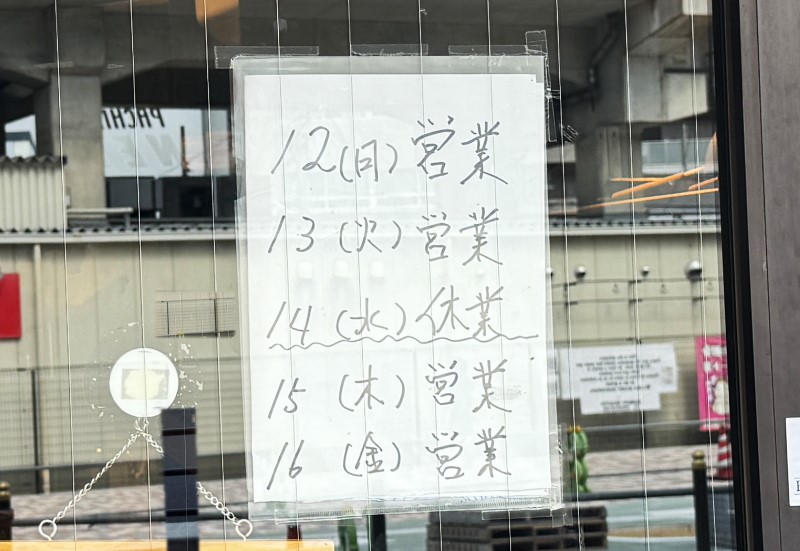 12(日)営業
13(火)営業
14(水)休業
15(木)営業
16(金)営業